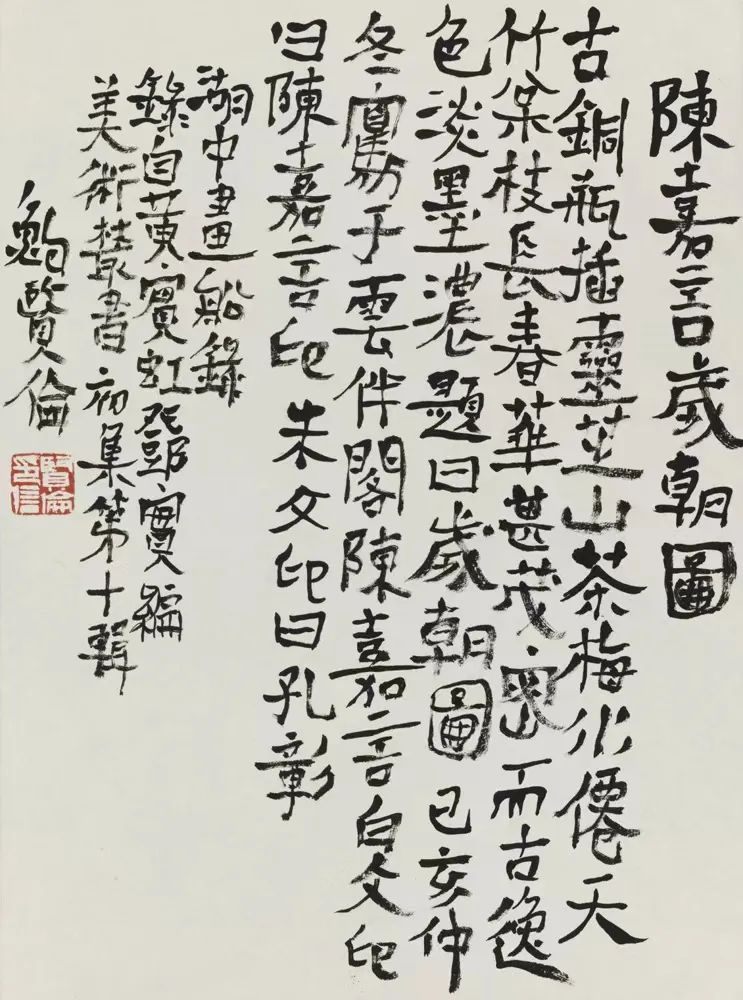 陳嘉言歲朝圖
古銅瓶插靈芝山茶梅水僊天
竹枝長春華甚茂密而古逸
色淡墨濃題曰歲朝圖 己亥仲
冬寫于雲伴閣陳嘉言白文印
曰陳嘉言印 朱文印曰孔彰
湖中畫船錄
錄自黃賓虹鄧實編
美術叢書初集第十輯
鮑賢倫
賢倫印信